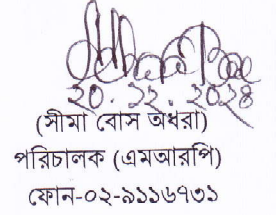 ২০.১২.২০২৪
(সীমা বোস অথরা)
পরিচালক (এমআরপি)
ফোন-০২-৯১১৬৭৩১